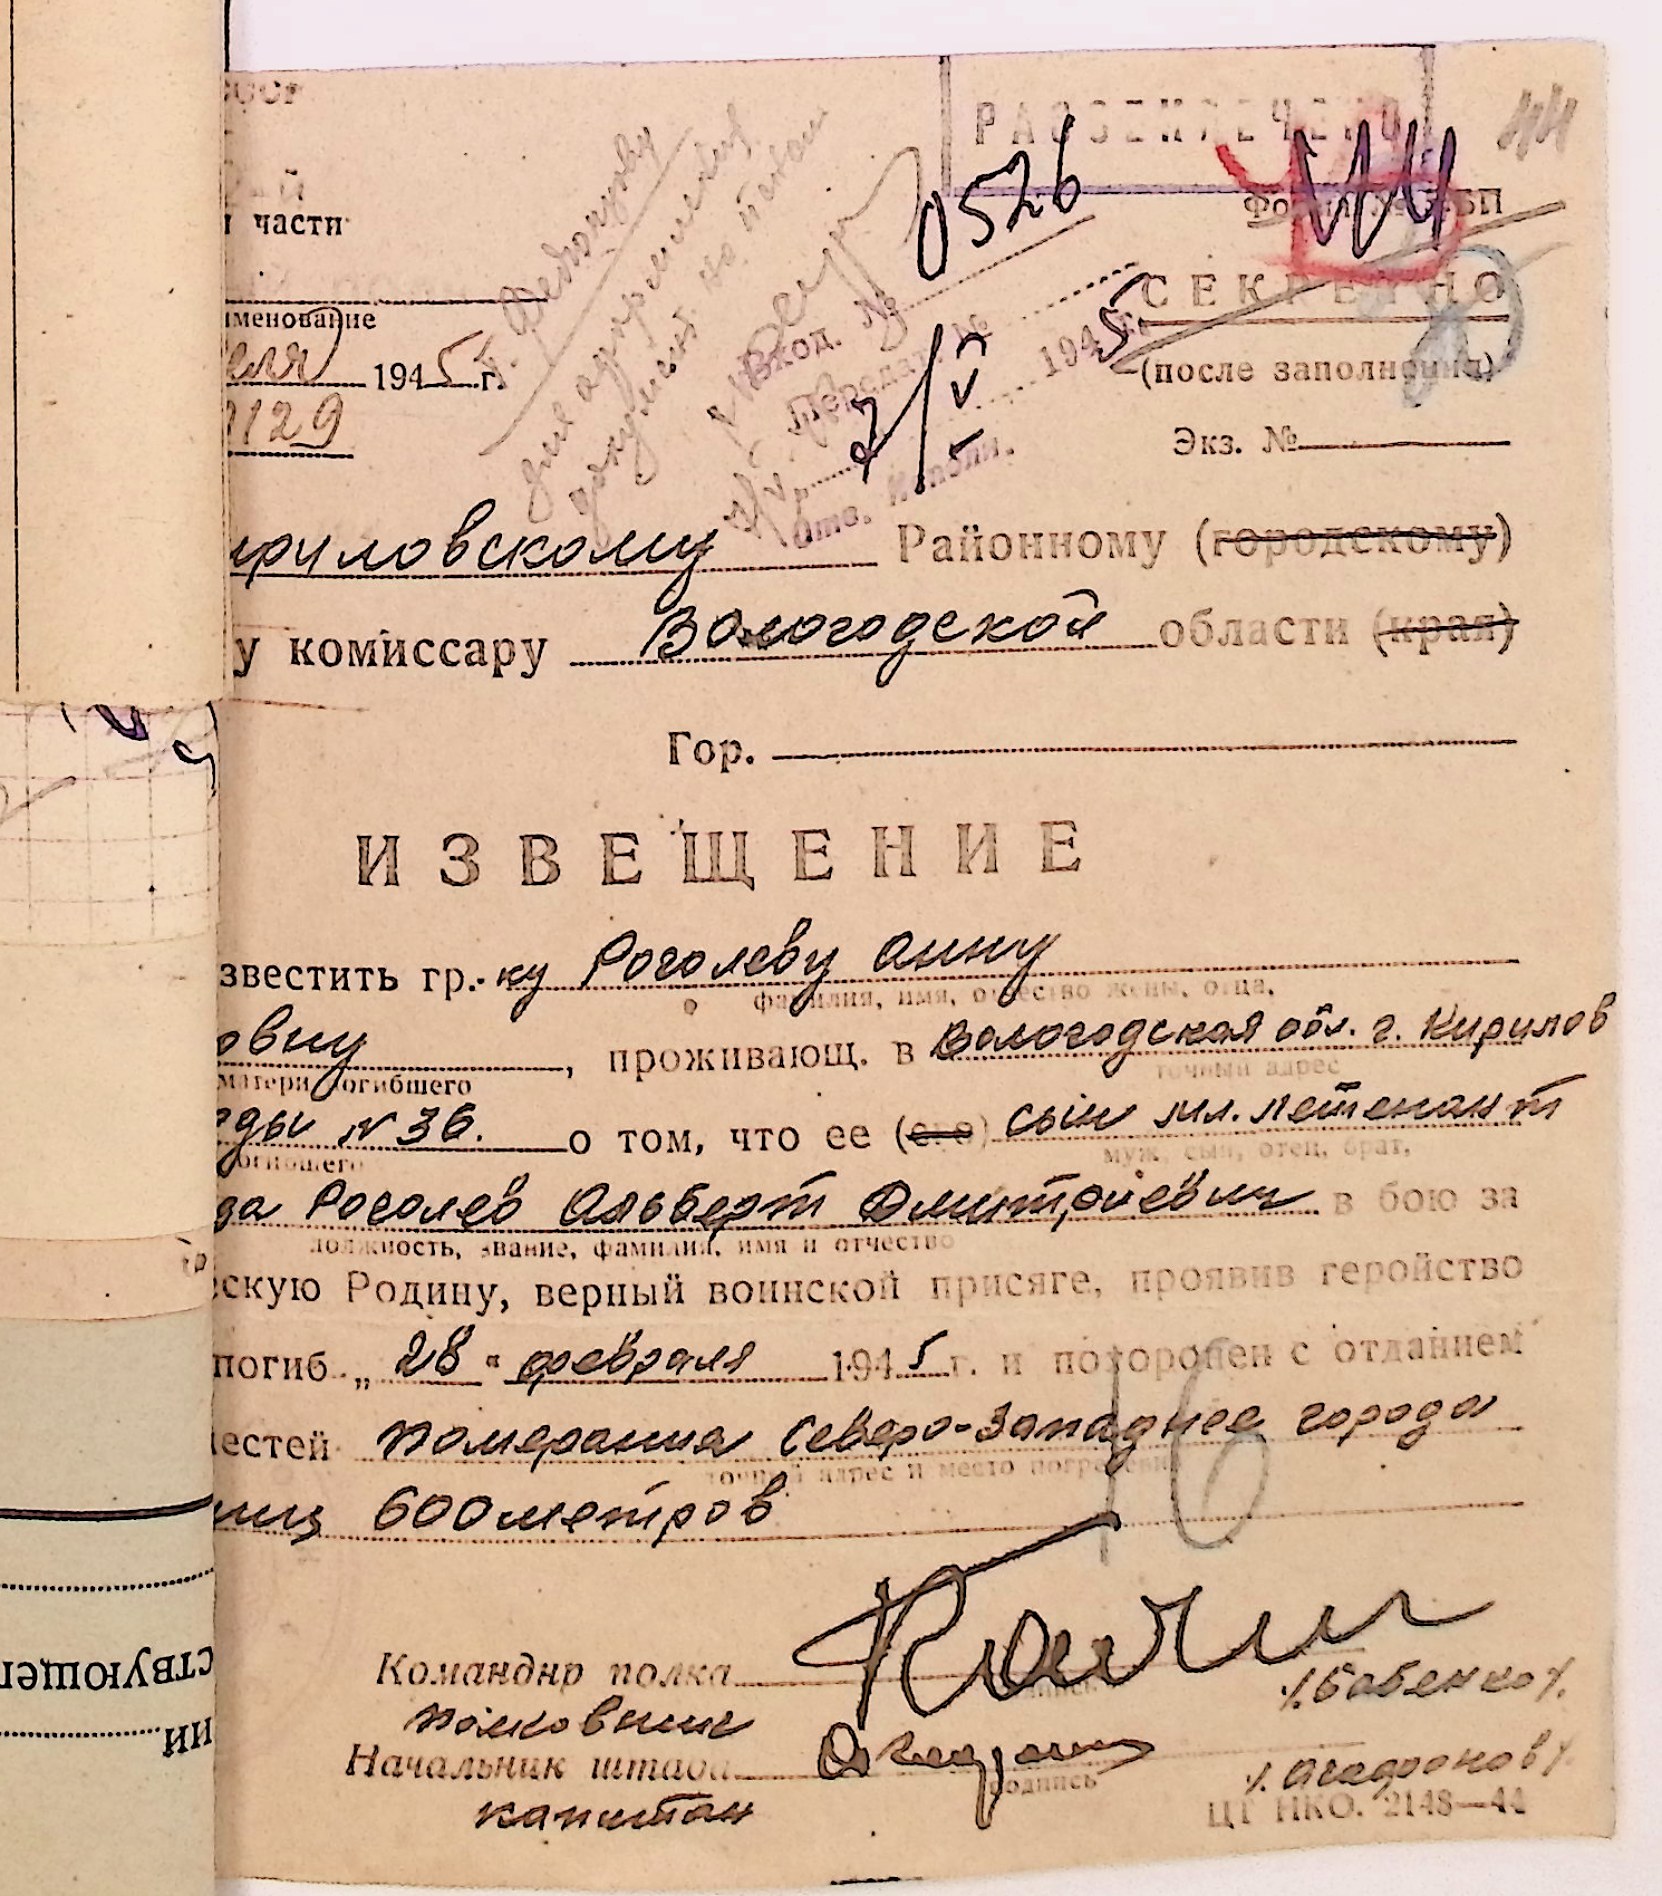 СССР
РАССЕКРЕЧЕНО
44
части
0526
именование
СЕКРЕТНО
еля 1945 г.
(после заполнения)
1129
Вход. №
1945 г.
Экз. №
ириловскому Районному (городскому)
у комиссару Вологодской области (края)
Гор.
ИЗВЕЩЕНИЕ
звестить гр.-ку Роголеву Анну
фамилия, имя, отчество жены, отца,
овну, проживающ. в Вологодская обл. г. Кирилов
матери погибшего
точный адрес
ды N 36. о том, что ее (его) сын мл. летенант
огибшего
муж, сын, отец, брат,
да Роголев Альберт Дмитриевич в бою за
должность, звание, фамилия, имя и отчество
ескую Родину, верный воинской присяге, проявив геройство
погиб „28" февраля 1945 г. и похоронен с отданием
честей Померания Северо-Западнее города
точный адрес и место погребения
ниц 600 метров
16
Командир полка
подпись
/Бабенко/.
полковник
Начальник штаба
подпись
/.Агафонов/.
капитан
ЦТ НКО. 2148—44
ствующег
ии